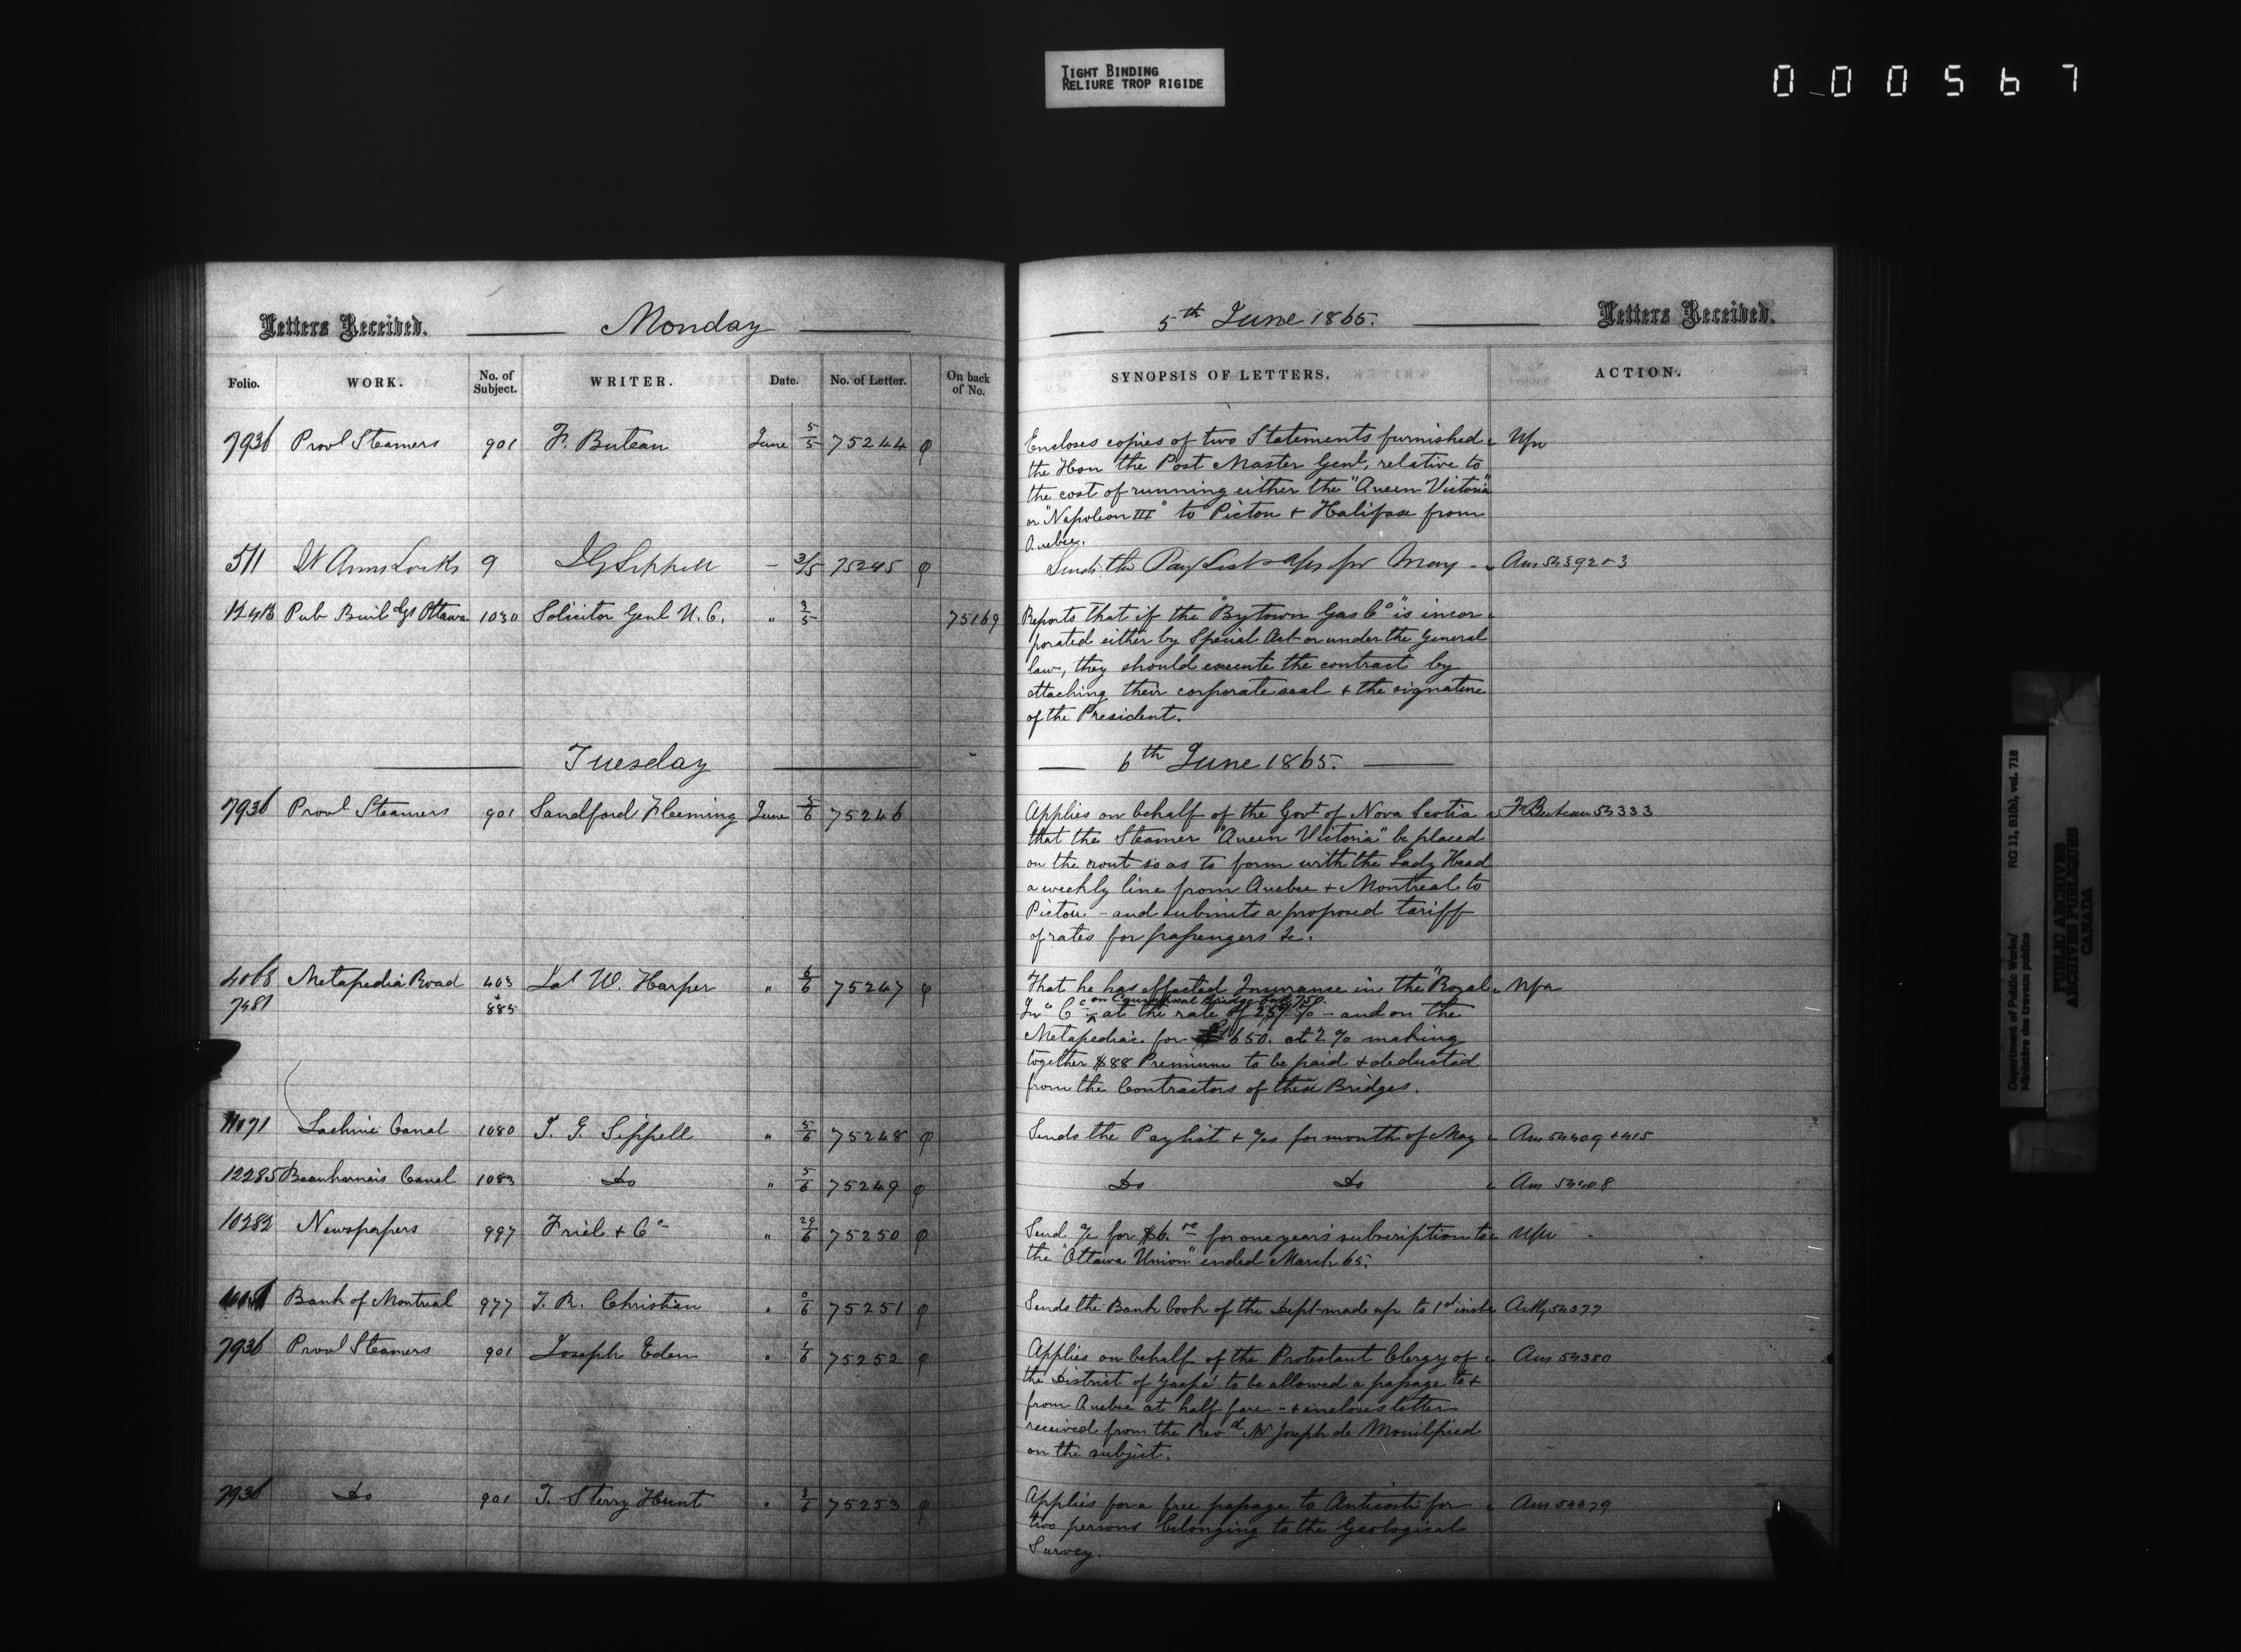 TIGHT BINDING
RELIURE TROP RIGIDE
000567
Letters Received. Monday
Folio. WORK. No. of Subject. WRITER. Date. No. of Letter. On back of No.
7936 Provl Steamers 901 F. Buteau June 5/5 75244 φ
511 St Anns Locks 9 J G Sippell 3/5 75245 φ
12413 Pub Buildgs Ottawa 1030 Solicitor Genl U. C. " 3/5 75169
Tuesday
7936 Provl Steamers 901 Sandford Fleeming June 5/6 75246
4068 Metapedia Road 403 Jas W. Harper " 6/6 75247 φ
7481 + 885
11071 Lachine Canal 1080 J. G. Sippell " 5/6 75248 φ
12285 Beauharnois Canal 1083 Do " 5/6 75249 φ
10282 Newspapers 997 Friel + Co " 29/6 75250 φ
Bank of Montreal 977 T. R. Christian " 75251 φ
7936 Provl Steamers 901 Joseph Eden " 1/6 75252 φ
7936 Do 901 T. Sterry Hunt " 3/6 75253 φ
5th June 1865. Letters Received.
SYNOPSIS OF LETTERS. ACTION.
Encloses copies of two Statements furnished Nfa
the Hon the Post Master Genl, relative to
the cost of running either the "Queen Victoria"
or "Napoleon III" to Pictou + Halifax from
Quebec.
Sends the Pay List + a/cs for May
Reports that if the "Bytown Gas Co" is incor
porated either by Special Act or under the General
law, they should execute the contract by
attaching their corporate seal + the signature
of the President.
6th June 1865.
Applies on behalf of the Govt of Nova Scotia F Buteau 54333
that the Steamer "Queen Victoria" be placed
on the rout so as to form with the Lady Head
a weekly line from Quebec + Montreal to
Pictou - and submits a proposed tariff
of rates for passengers &c.
That he has effected Insurance in the "Royal Nfa
on Causapscal Bridge for $2,750.
Ins Co at the rate of 2 % - and on the
Metapedia for 1650. at 2 % making
together $88 Premium to be paid + deducted
from the Contractors of these Bridges.
Sends the Paylist + a/cs for month of May Ans 54409 + 415
Do Do Ans 54408
Send a/c for $6.00 for one year's subscription to Nfa
the "Ottawa Union" ended March 65.
Sends the Bank book of the Dept made up to 1st inst Ackg 54377
Applies on behalf of the Protestant Clergy of Ans 54380
the District of Gaspé to be allowed a passage to +
from Quebec at half fare - + encloses letter
received from the Revd Mr Joseph de
on the subject.
Applies for a free passage to Anticosti for Ans 54379
two persons belonging to the Geological
Survey.
Department of Public Works/ RG 11, B1(b), vol. 718
Ministère des travaux publics
PUBLIC ARCHIVES
ARCHIVES PUBLIQUES
CANADA